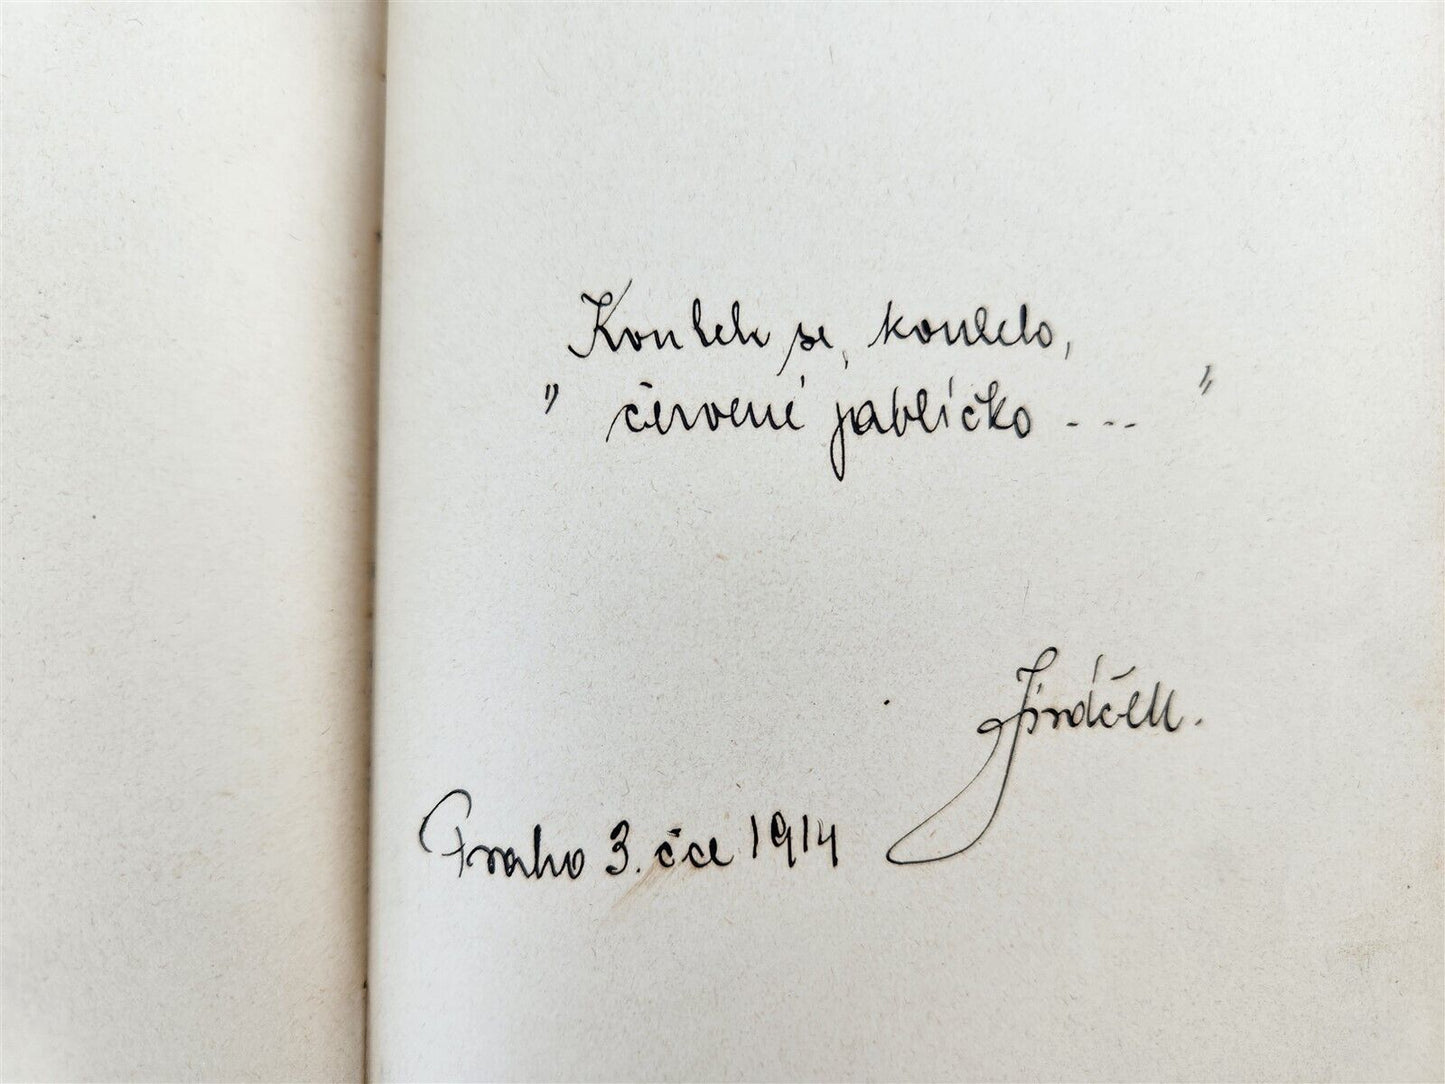 Koulelo se, koulelo,
" červené jablíčko - - - "
Jindáček.
Praha 3. čce 1914